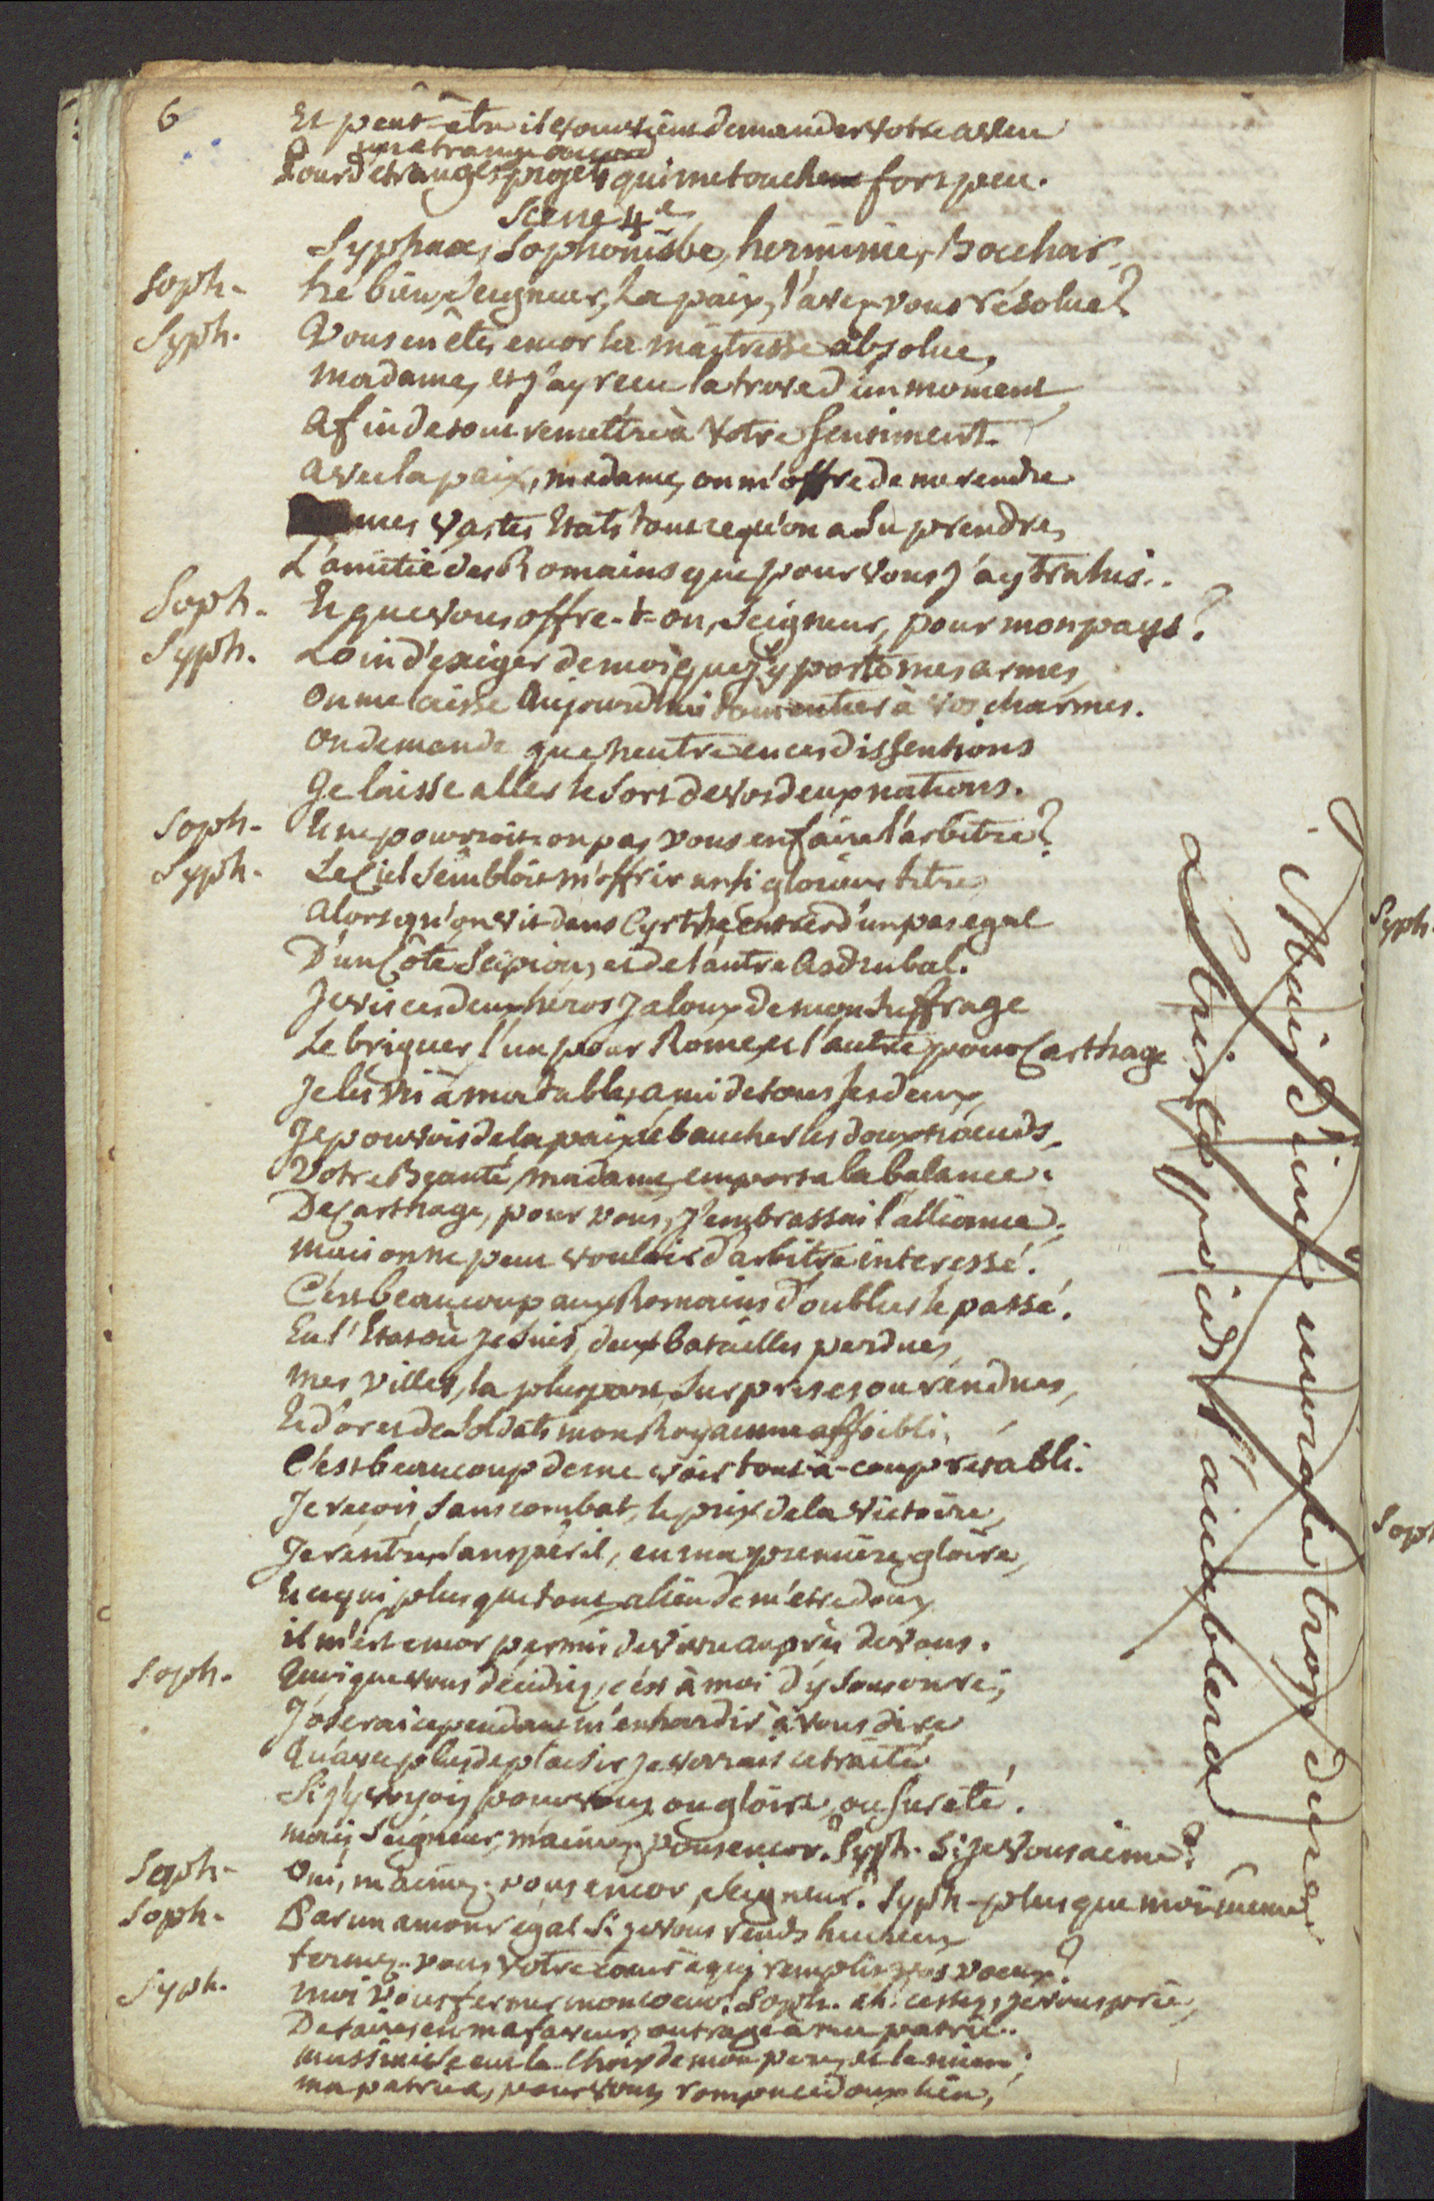 6
Et peut-être il vous vient demander votre aveu
un etrange accord
Pour d'etranges projets qui me touchent fort peu.
Scene 4e
Syphax, Sophonisbe, herminie, Bocchar.
Soph. hé bien, Seigneur, la paix, l'avez-vous résolue?
Syph. Vous en êtes encor la maîtresse absolue,
madame, et j'ay receu la treve d'un moment
afin de vous remettre à votre sentiment.
avec la paix, madame, on m'offre de me rendre
mes vastes Etats tout ce qu'on a su prendre,
L'amitié des Romains que pour vous j'ay trahis..
Soph. Et que vous offre-t-on, Seigneur, pour mon pays?
Syph. Loin d'exiger de moi que j'y porte mes armes,
on me laisse aujourd'hui tout entier à vos charmes.
on demande que neutre en ces dissentions
Je laisse aller le sort de vos deux nations.
Soph. Et ne pourroit-on pas vous en faire l'arbitre?
Syph. Le Ciel sembloit m'offrir un si glorieux titre
alors qu'on vit dans Cyrthe entrer d'un pas egal
D'un Côté Scipion, et de l'autre Asdrubal.
Je vis ces deux heros jaloux de mon suffrage
Le briguer l'un pour Rome, et l'autre pour Carthage
Je les vis à ma table, ami de tous les deux,
Je pouvois de la paix ébaucher les doux noeuds.
Votre Beauté, madame, emporta la balance.
De Carthage, pour vous, j'embrassai l'alliance;
mais on ne peut vouloir d'arbitre interessé.
C'est beaucoup aux Romains d'oublier le passé.
En l'Etat où je suis, deux batailles perdues,
mes villes, la plupart, surprises ou rendues,
Et d'or et de soldats mon Royaume affoibli,
C'est beaucoup de me voir tout-à-coup rétabli.
Je reçois, sans combat, le prix de la victoire,
Je rentre, sans péril, en ma première gloire,
Et ce qui plus que tout a lieu de m'être doux
il m'est encor permis de vivre auprès de vous.
Soph. Quoi que vous décidiez, c'est à moi d'y souscrire;
J'oserai cependant m'enhardir à vous dire
Qu'avec plus de plaisir je verrais ce traité
Si j'y voyois pour vous ou gloire, ou sureté.
mais, Seigneur, m'aimez-vous encor? Syph. Si je vous aime?
Soph. Oui, m'aimez-vous encor, Seigneur? Syph. plus que moi-même
Soph. Par un amour égal si je vous rends heureux
fermez-vous votre coeur à qui remplit vos voeux?
Syph. moi vous fermer mon coeur! Soph. ah! cessez, je vous prie,
De faire en ma faveur outrage à ma patrie..
massinisse eut le choix de mon pere, et le mien;
ma patrie, pour vous, rompit ce doux lien,
Mais d'une morale trop dure
le triste poids t'accablera
Syph.
Soph